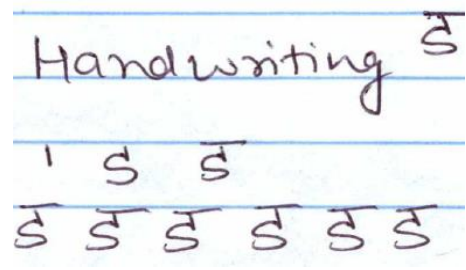 Handwriting ड
ड
ड ड ड ड ड ड